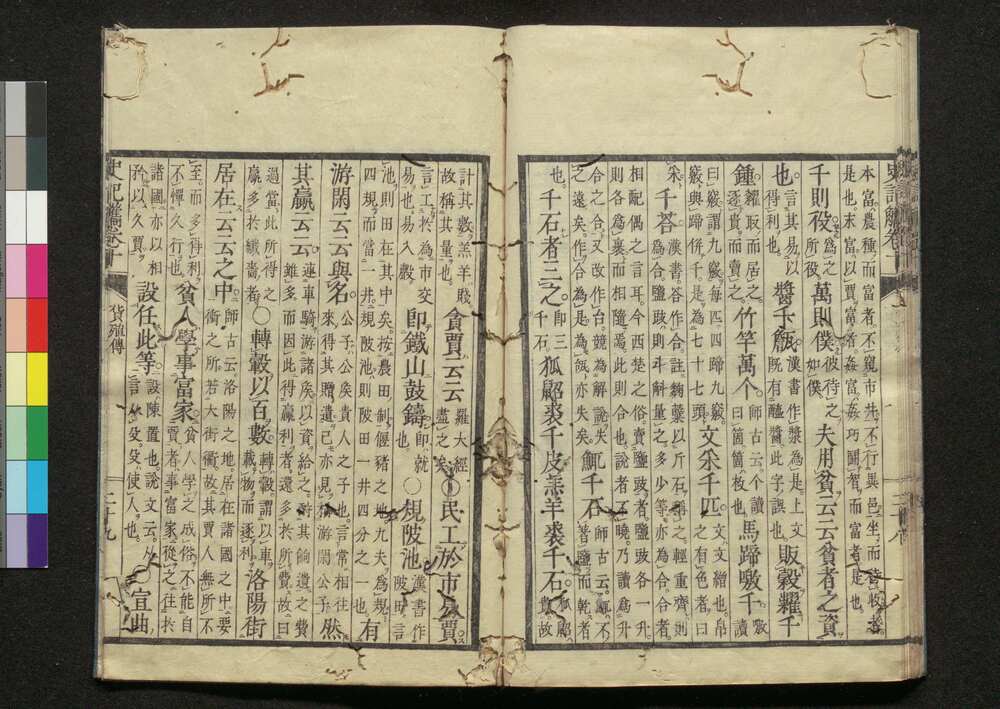 本富農種而富者不窺市井不行異邑坐而待收者
是也末富以賈富者姦富姦巧圖智而富者是也
千則役為之所役萬則僕彼待之如僕夫用貧云云貧者之資
也言其易以得利也醬千瓨漢書作漿為是上文既有醯醬此字誤也販穀糶千
鍾糴取而居之逐貴而賣之竹竿萬个師古云个讀曰箇箇枚也馬蹄噭千噭讀
曰竅謂九竅每四蹄歸九竅竅與蹄併千是為七十七頭文采千匹文文繒也帛之有色者曰
采千荅漢書荅作合註麴蘗以斤石稱之輕重齊則為合鹽豉則斗斛量之多少等亦為合文
相配偶之言耳今西楚之俗賣鹽豉者鹽豉各一升
則各為裹而相隨焉此則合也說者不曉乃讀為升
合之合又改作台競為解說失之遠矣作合為是亦失矣鮿千石師古云鮿不着鹽而乾者
也千石者三之即三千石狐貂裘千皮羔羊裘千石狐貂貴故
計其數羔羊賤故稱其量也貪賈云云羅大經盡之矣○民工於市易賈
言工於為市交易也易入穀即鐵山鼓鑄即就也○規陂池漢書作陂田言
池則田在其中矣按農田制偃豬之地九夫為規
四規而當一井規陂池則陂田一井四分之一也有
游閑云云與名公子公矣貴人之子也言常相往來得其贈遺己亦見稱游閑公子然
其贏云云連車騎游諸矣以資給之其餉遺之費雖多而因此得贏利者還多於所費故曰
過當此所得之贏多於纖嗇者○轉轂以百數轉轂謂以車載物而逐利洛陽街
居在云云之中師古云洛陽之地居在諸國之中要衝之所若大街衢故其賈人無所不
至而多得利不憚久行也貧人學事富家貧人學之成俗不能自賈者事富家從之往於
諸國亦以相矜以久賈設任此等設陳置也說文云从言从殳殳使人也○宣曲
史記觿卷十 貨殖傳 二十九